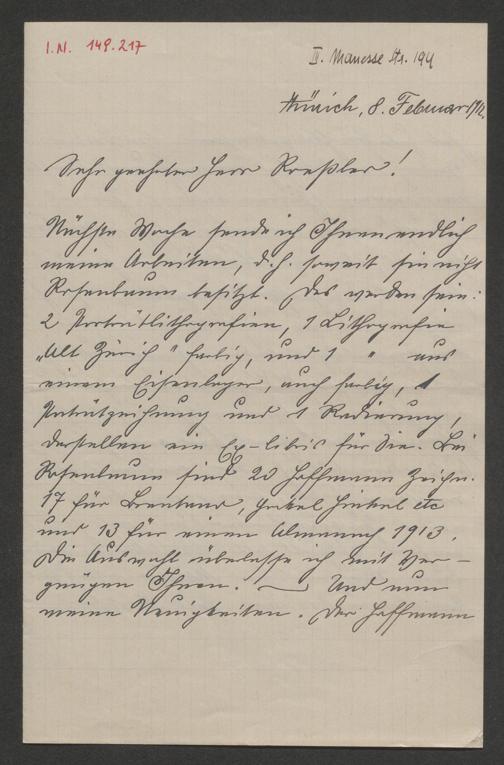 I.N. 149.217
II. Manesse Str. 194
Zürich, 8. Februar 1912.
Sehr geehrter Herr Roeßler!
Nächste Woche sende ich Ihnen endlich
meine Arbeiten, d.h. soweit sie nicht
Rosenbaum besitzt. Das werden sein:
2 Porträtlithografien, 1 Lithografie
„Alt Zürich" farbig, und 1 " aus
einem Eisenlager, auch farbig, 1
Porträtzeichnung und 1 Radierung,
darstellen ein Ex-libris für Sie. Bei
Rosenbaum sind 20 Hoffmann Zeichn.
17 für Brentano, Gockel Hinkel etc
und 13 für einen Almanach 1913.
Die Auswahl überlasse ich mit Ver-
gnügen Ihnen. — Und nun
meine Neuigkeiten. Der Hoffmann